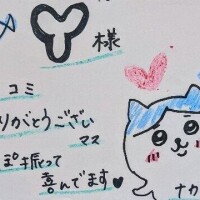 様
コミ
りがとうござい
マス
振って
喜んでます♥
ナカ